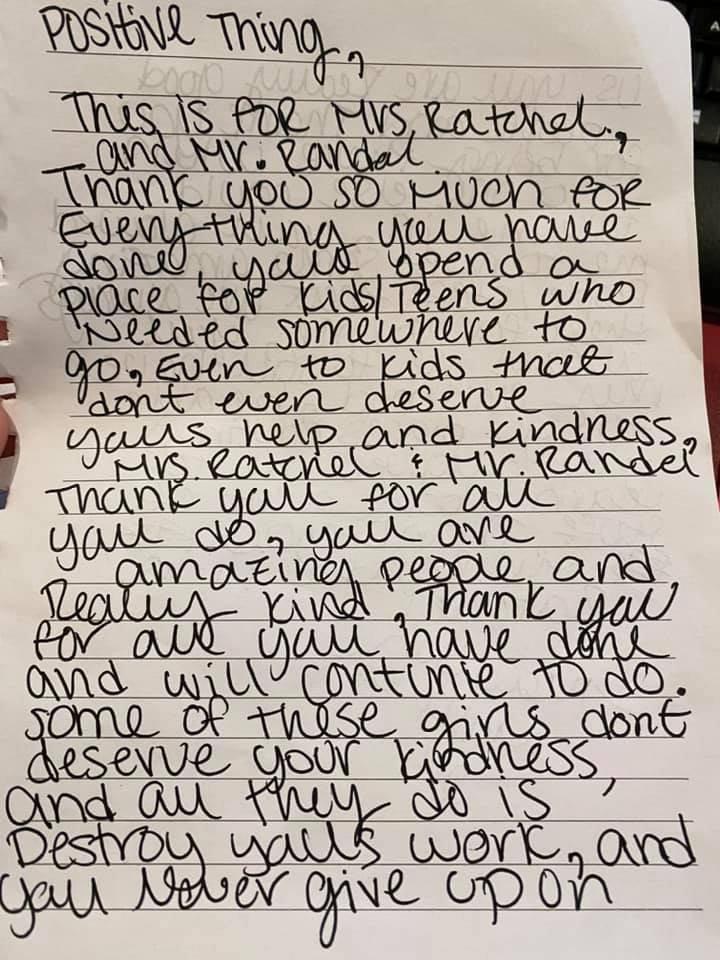 Positive Thing,
This is for Mrs. Ratchel.,
and Mr. Randal
Thank you so much for
Everything yall have
done, yalls opend a
place for kids/Teens who
Needed somewhere to
go. Even to kids that
dont even deserve
yalls help and kindness,
Mrs. Ratchel & Mr. Randel
Thank yall for all
yall do, yall are
amazing people and
Really kind, Thank yall
for all yall have done
and will contunie to do.
some of these girls dont
deserve your kindness,
and all they do is
Destroy yalls work, and
yall Never give up on